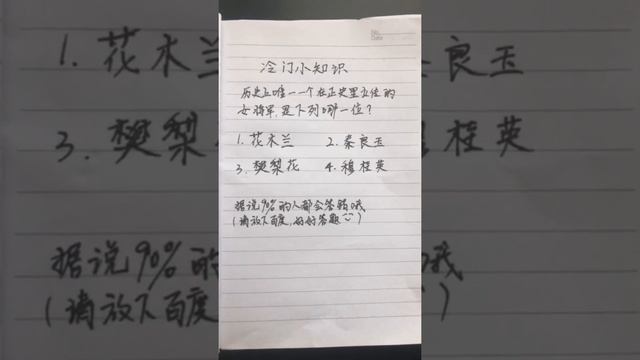 冷门小知识
历史上唯一一个在正史里立传的
女将军,是下列哪一位?
1.花木兰 2.秦良玉
3.樊梨花 4.穆桂英
据说90%的人都会答错哦
(请放下百度,好好答题)